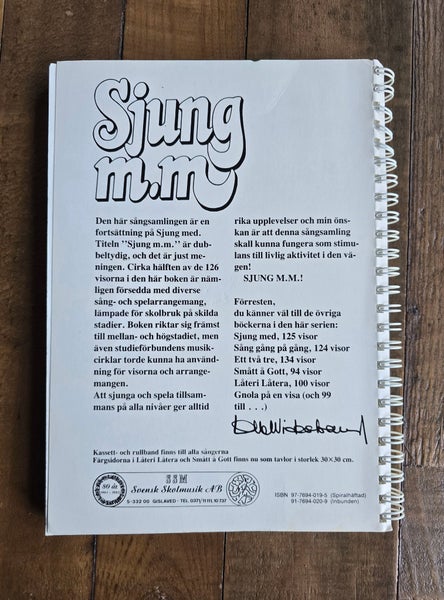 Sjung
m.m
Den här sångsamlingen är en
fortsättning på Sjung med.
Titeln "Sjung m.m." är dub-
beltydig, och det är just me-
ningen. Cirka hälften av de 126
visorna i den här boken är näm-
ligen försedda med diverse
sång- och spelarrangemang,
lämpade för skolbruk på skilda
stadier. Boken riktar sig främst
till mellan- och högstadiet, men
även studieförbundens musik-
cirklar torde kunna ha använd-
ning för visorna och arrange-
mangen.
Att sjunga och spela tillsam-
mans på alla nivåer ger alltid
rika upplevelser och min öns-
kan är att denna sångsamling
skall kunna fungera som stimu-
lans till livlig aktivitet i den vä-
gen!
SJUNG M.M.!
Förresten,
du känner väl till de övriga
böckerna i den här serien:
Sjung med, 125 visor
Sång gång på gång, 124 visor
Ett två tre, 134 visor
Smått å Gott, 94 visor
Låteri Låtera, 100 visor
Gnola på en visa (och 99
till . . .)
Kassett- och rullband finns till alla sångerna
Färgsidorna i Låteri Låtera och Smått å Gott finns nu som tavlor i storlek 30×30 cm.
80 år
SSM
Svensk Skolmusik AB
S-332 00 GISLAVED · TEL. 0371/111 11, 107 37
ISBN 97-7694-019-5 (Spiralhäftad)
91-7694-020-9 (Inbunden)